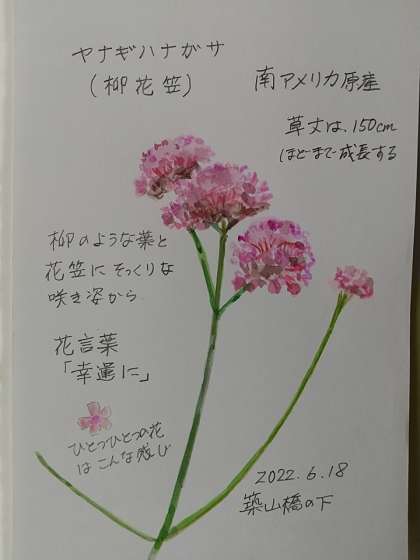 ヤナギハナガサ
(柳花笠)
南アメリカ原産
草丈は、150cm
ほどまで成長する
柳のような葉と
花笠にそっくりな
咲き姿から
花言葉
「幸運に」
ひとつひとつの花
はこんな感じ
2022.6.18
築山橋の下